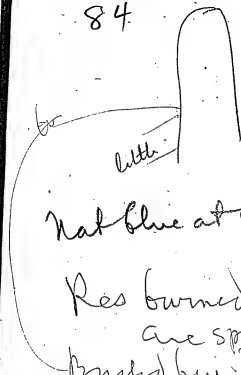 84
to
little
Nat blue at
Res burned
are sp